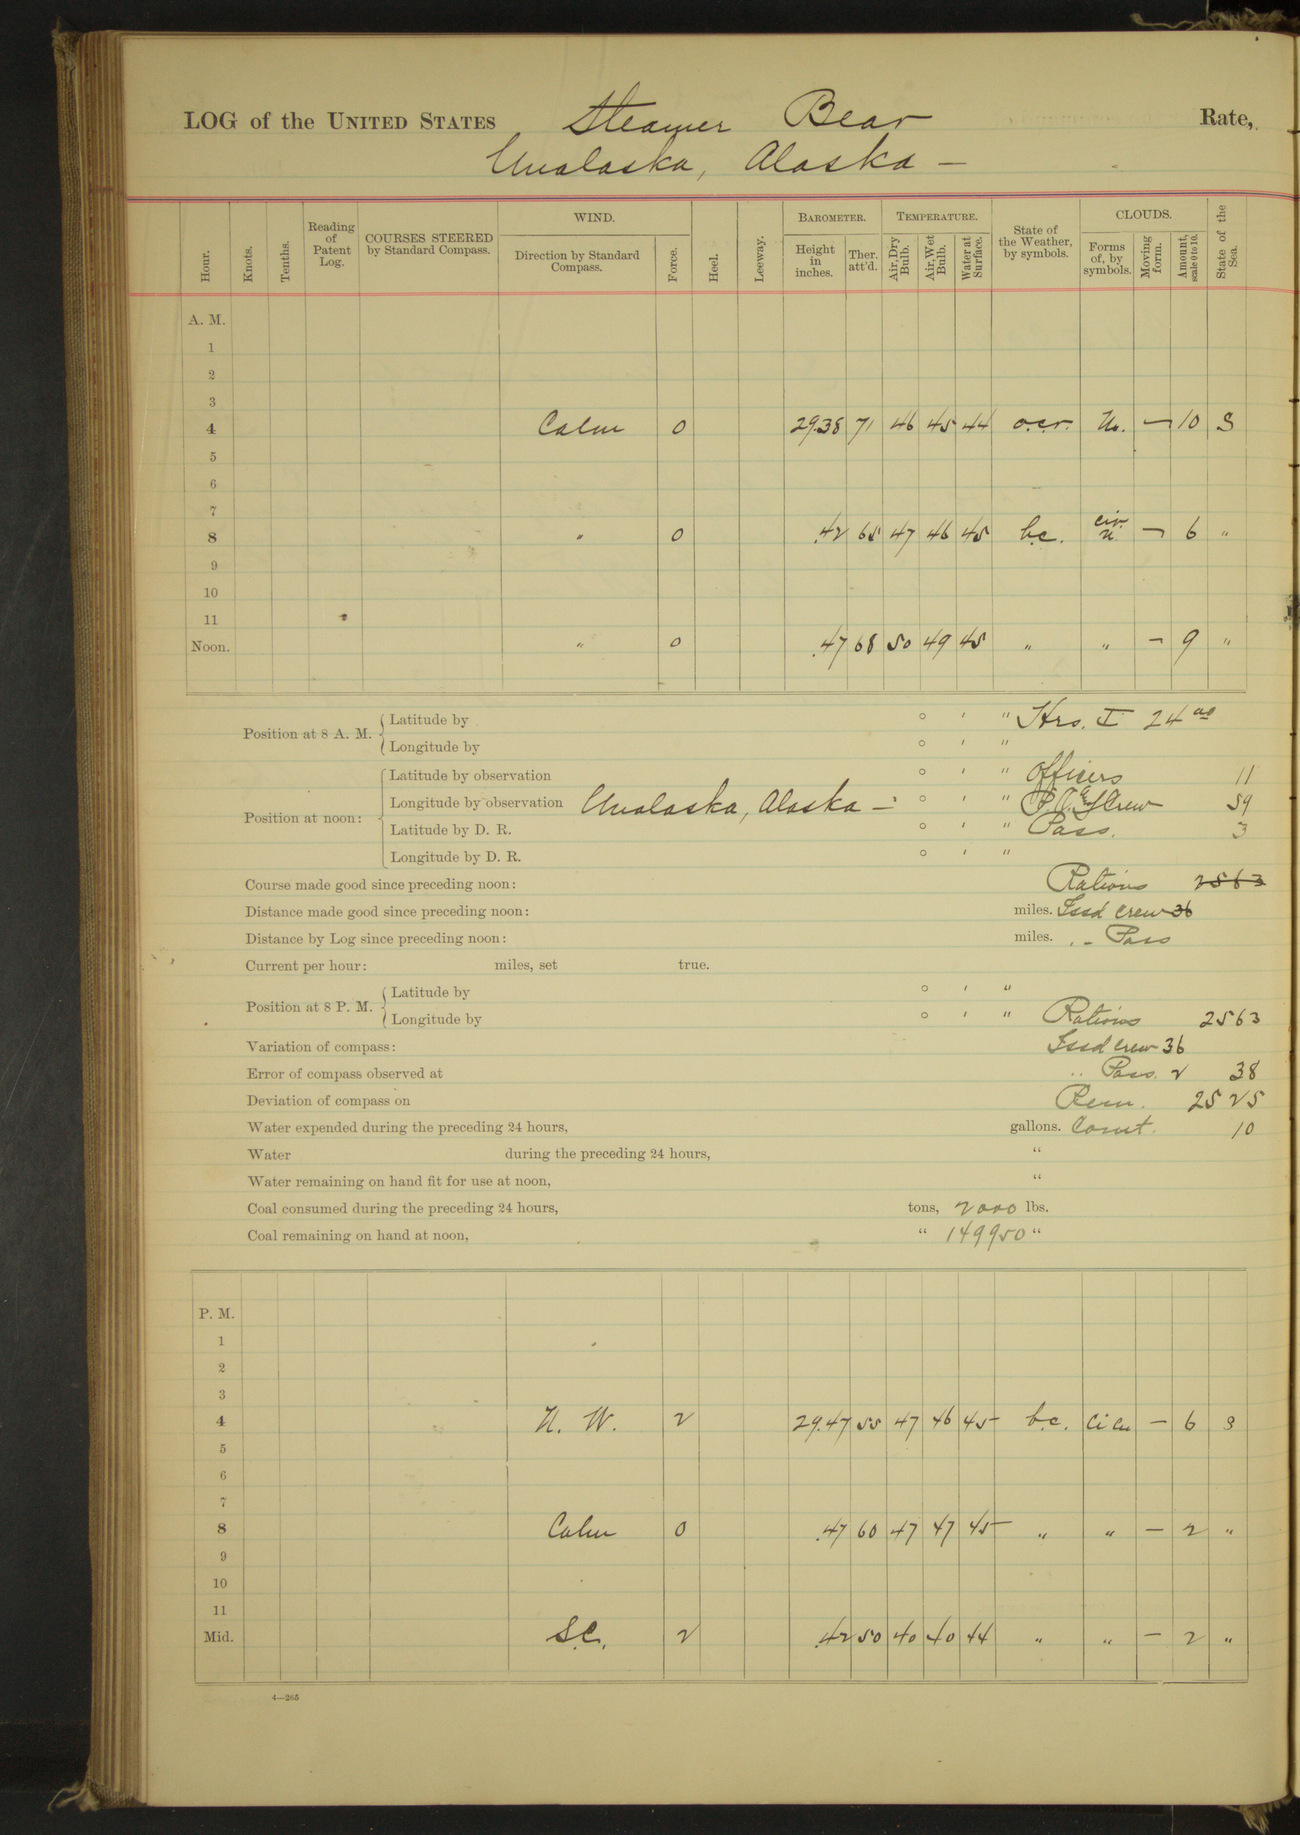 LOG of the UNITED STATES Steamer Bear Rate,
Unalaska, Alaska —
Hour. Knots. Tenths. Reading of Patent Log. COURSES STEERED by Standard Compass. WIND. Direction by Standard Compass. Force. Heel. Leeway. BAROMETER. Height in inches. Ther. att'd. TEMPERATURE. Air, Dry Bulb. Air, Wet Bulb. Water at Surface. State of the Weather, by symbols. CLOUDS. Forms of, by symbols. Moving form. Amount, scale 0 to 10. State of the Sea.
A. M.
1
2
3
4 Calm 0 29.38 71 46 45 44 o.c.r. N. — 10 S
5
6
7
8 " 0 .42 65 47 46 45 b.c. cir. n. — 6 "
9
10
11
Noon. " 0 .47 68 50 49 45 " " — 9 "
Position at 8 A. M. { Latitude by ° ' " Hrs. I 24
Longitude by ° ' "
Position at noon: Latitude by observation ° ' " Officers 11
Longitude by observation Unalaska, Alaska — ° ' " Crew 59
Latitude by D. R. ° ' " Pass. 3
Longitude by D. R. ° ' "
Course made good since preceding noon: Rations 2563
Distance made good since preceding noon: miles. Issd Crew 36
Distance by Log since preceding noon: miles. " Pass
Current per hour: miles, set true.
Position at 8 P. M. { Latitude by ° ' "
Longitude by ° ' " Rations 2563
Variation of compass: Issd crew 36
Error of compass observed at " Pass. 2 38
Deviation of compass on Rem. 2525
Water expended during the preceding 24 hours, gallons. Comt. 10
Water during the preceding 24 hours, "
Water remaining on hand fit for use at noon, "
Coal consumed during the preceding 24 hours, tons, 2000 lbs.
Coal remaining on hand at noon, " 149950 "
P. M.
1
2
3
4 N. W. 2 29.47 55 47 46 45 b.c. Ci Cu — 6 S
5
6
7
8 Calm 0 .47 60 47 47 45 " " — 2 "
9
10
11
Mid. S.E. 2 .42 50 40 40 44 " " — 2 "
4—265